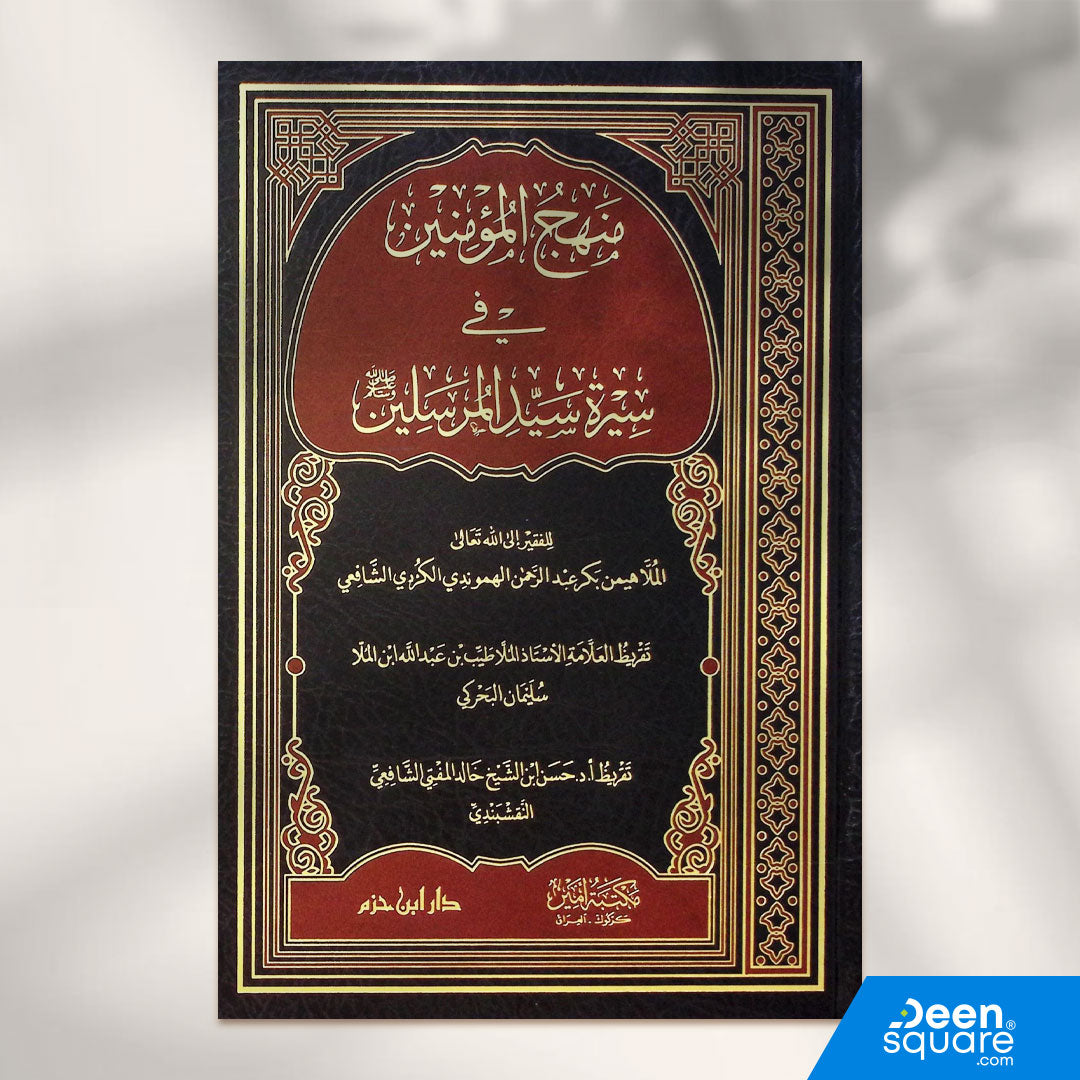 مَنهَجُ المُؤْمِنِين
في
سِيرَة سَيِّدِ المُرسَلِين ﷺ
للفقير إلى الله تَعَالى
المُلَّا هيمن بكر عبْد الرَّحمٰن الهموندي الكُرْدي الشَّافِعي
تَقريظُ العَلَّامَةِ الأسْتاذ المُلا طَيِّب بْن عَبْد الله ابْن المُلّا
سُليْمَان البَحْركي
تَقريظُ أ.د. حَسَن ابْن الشَّيْخ خَالد المفْتي الشَّافِعِيّ
النَّقشبَنديّ
مكتبَة أمِير
كركوك - العِراق
دار ابن حزم
Deen®
square
.com